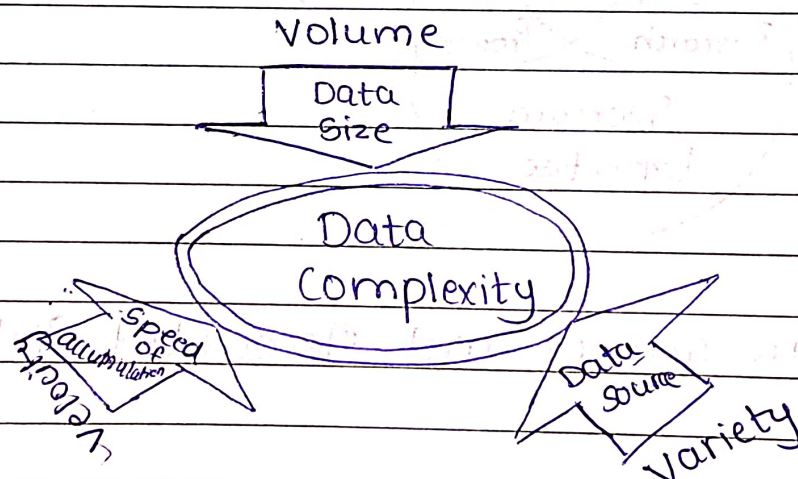 Volume
Data
Size
Data
Complexity
Speed
of
accumulation
Velocity
Data
Source
Variety